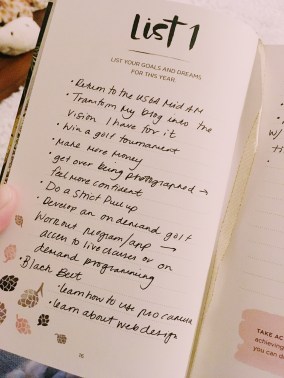 List 1
LIST YOUR GOALS AND DREAMS
FOR THIS YEAR.
• Return to the USGA Mid AM
• Transform My blog into the
vision I have for it
• Win a golf tournament
• Make More Money
• get over being photographed →
feel more confident
• Do a Strict Pull up
• Develop an on demand golf
Workout program/app →
access to live classes or on
demand programming
• Black Belt
• learn how to use pro camera
• learn about web design
TAKE AC
achieving
you can d